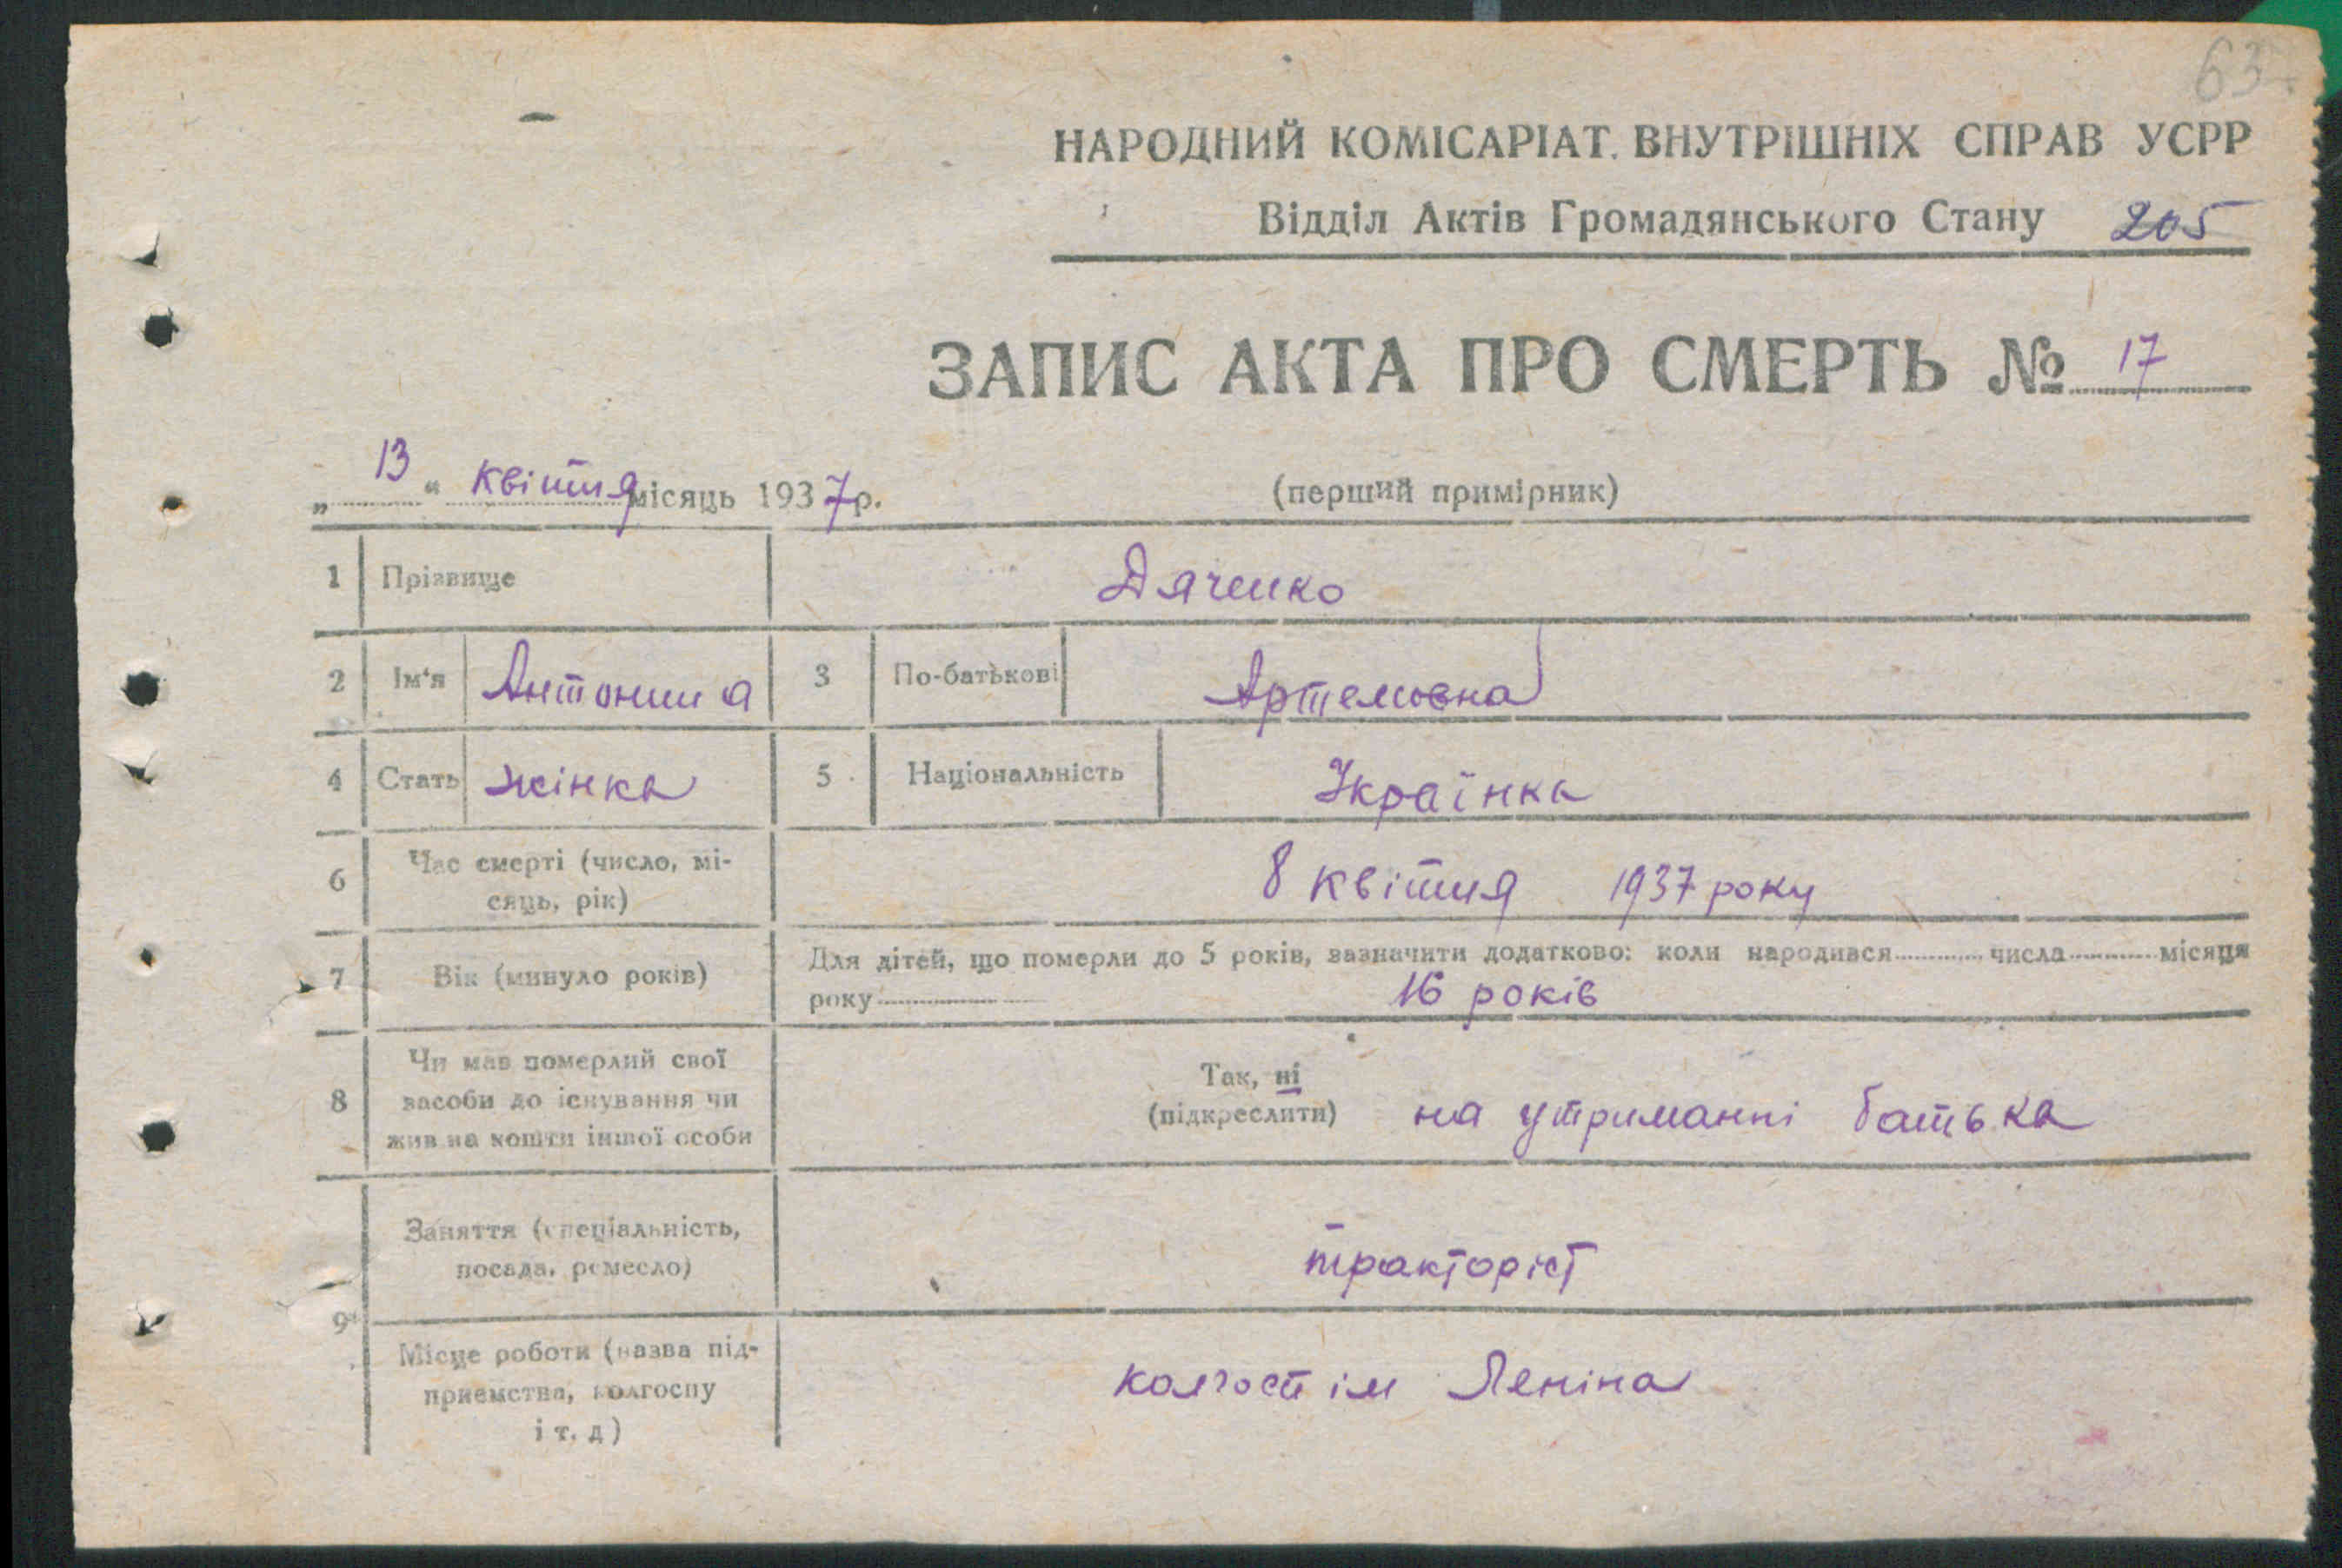 63
НАРОДНИЙ КОМІСАРІАТ ВНУТРІШНІХ СПРАВ УСРР
Відділ Актів Громадянського Стану 205
ЗАПИС АКТА ПРО СМЕРТЬ № 17
„ 13 “ квітня місяць 1937 р.
(перший примірник)
1 Прізвище Дяченко
2 Ім'я Антонина 3 По-батькові Артемовна
4 Стать жінка 5 Національність Українка
6 Час смерті (число, мі-
сяць, рік) 8 квітня 1937 року
7 Вік (минуло років) Для дітей, що померли до 5 років, зазначити додатково: коли народився числа місяця
року 16 років
8 Чи мав померлий свої
засоби до існування чи
жив на кошти іншої особи
Так, ні
(підкреслити) на утриманні батька
9 Заняття (спеціальність,
посада, ремесло) тракторіст
Місце роботи (назва під-
приємства, колгоспу
і т. д) колгосп ім Леніна